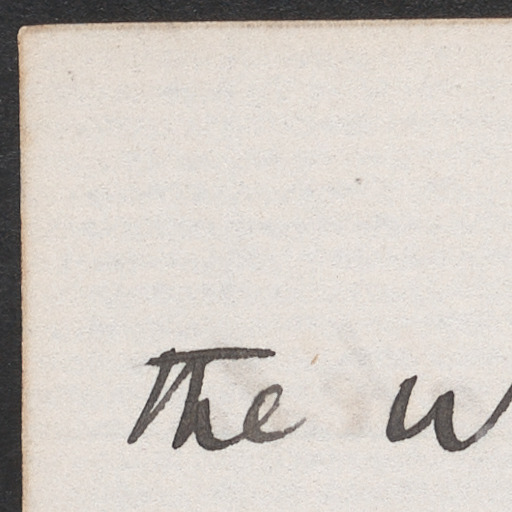 The w